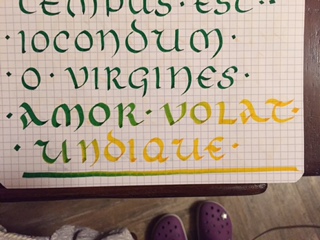 TEMPUS · EST ··
· IOCONDUM ·
· O · VIRGINES ·
· AMOR · VOLAT ·
· UNDIQUE ·